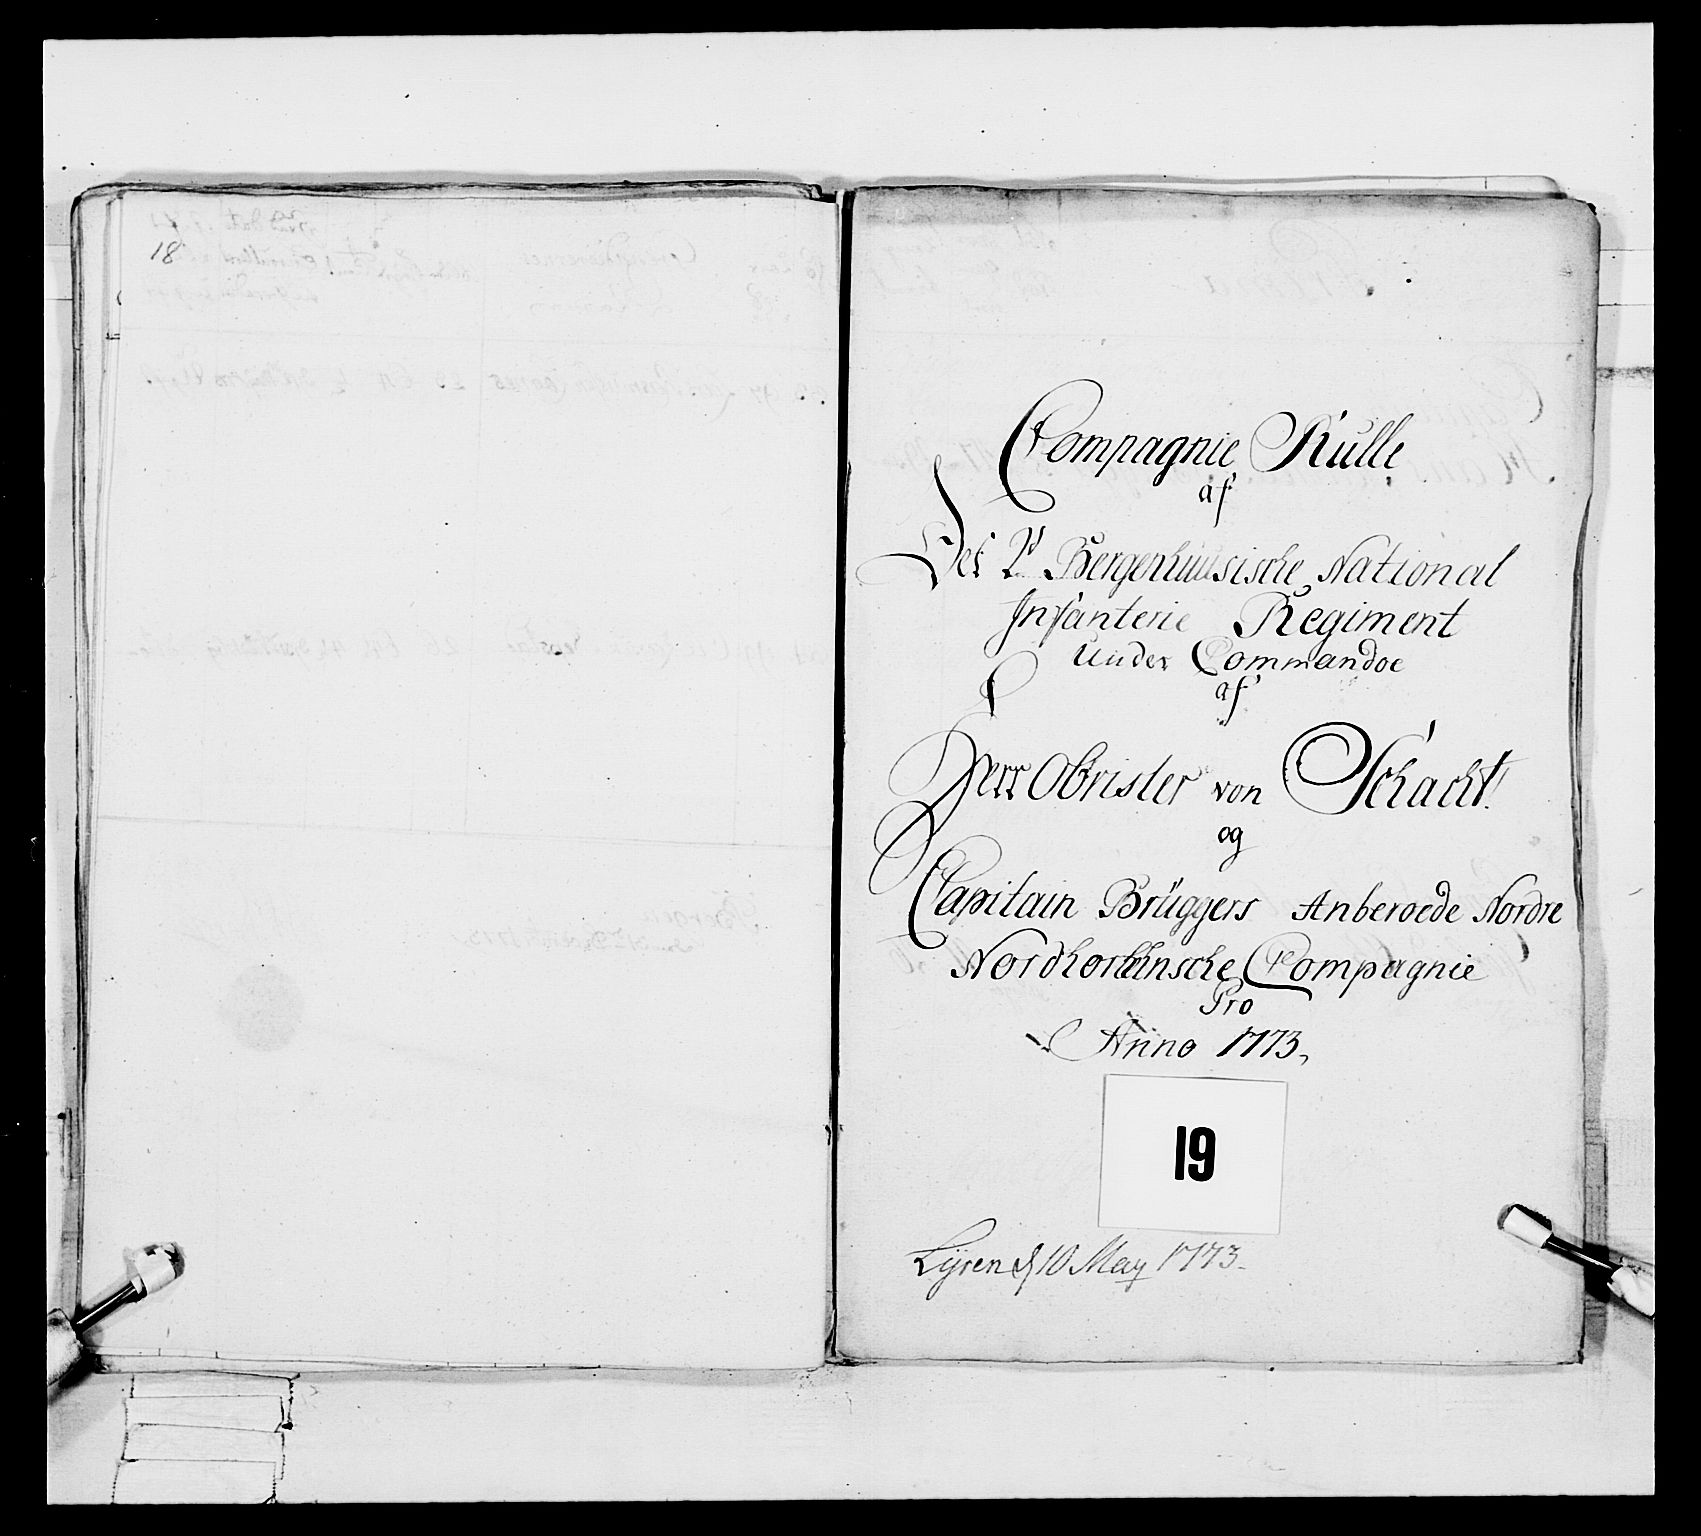 18
Compagnie Rulle
af
Det 2d Bergenhuusische National
Infanterie Regiment
Under Commandoe
af
Herr Obrister von Schacht
og
Capitain Brüggers Anberoede Nordre
Nordhorlehnsche Compagnie
Pro
Anno 1773,
19
d 10 May 1773